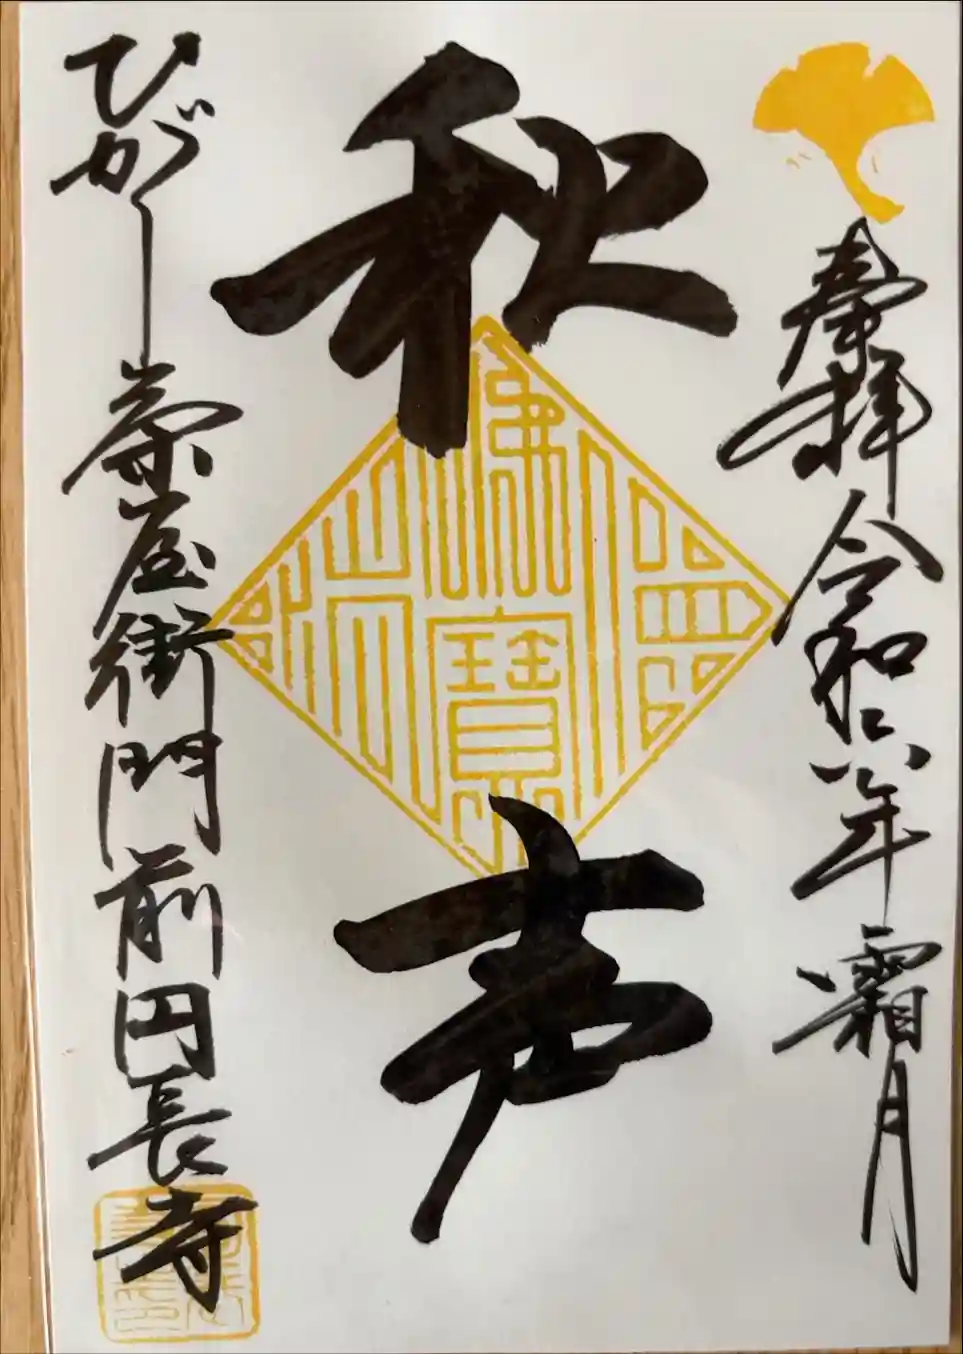 奉拝 令和六年 霜月
秋声
ひがし茶屋街門前円長寺